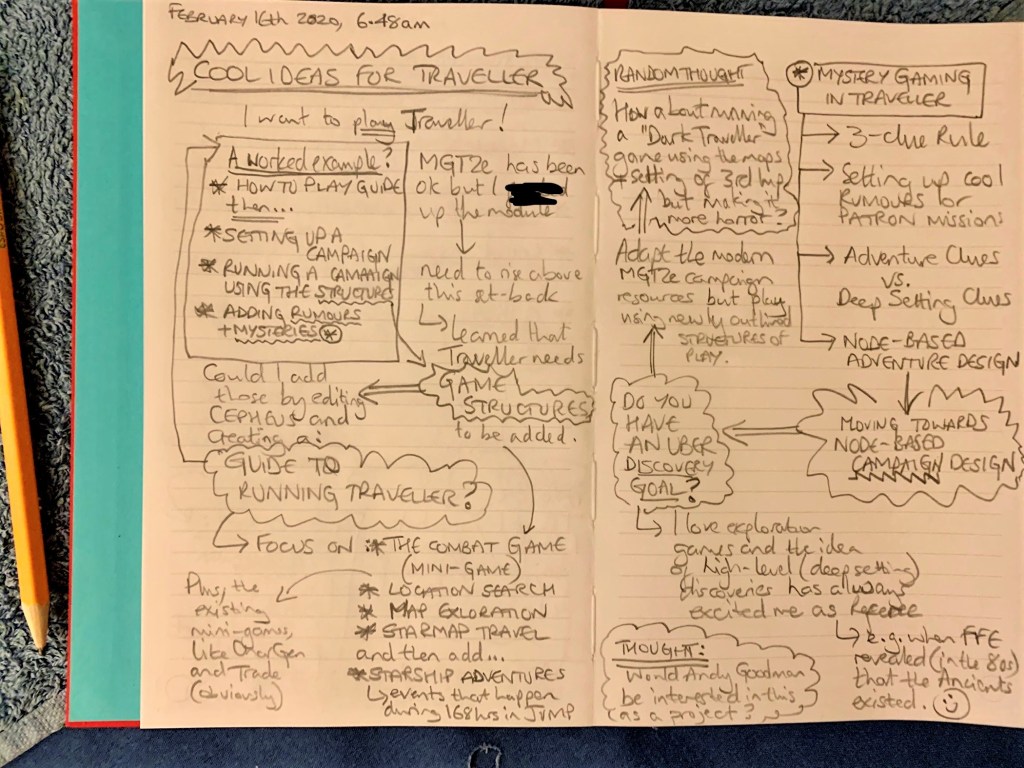 FEBRUARY 16th 2020, 6:48am
COOL IDEAS FOR TRAVELLER
I want to play Traveller!
A worked example?
* HOW TO PLAY GUIDE
then...
* SETTING UP A
CAMPAIGN
* RUNNING A CAMPAIGN
USING THE STRUCTURE
* ADDING RUMOURS
+ MYSTERIES *
MGT2e has been
ok but I
up the module
need to rise above
this set-back
Learned that
Traveller needs
GAME
STRUCTURES
to be added.
Could I add
those by editing
CEPHEUS and
creating a:
GUIDE TO
RUNNING TRAVELLER?
FOCUS ON : * THE COMBAT GAME
(MINI-GAME)
* LOCATION SEARCH
* MAP EXLORATION
* STARMAP TRAVEL
and then add...
* STARSHIP ADVENTURES
events that happen
during 168 hrs in JUMP
Plus, the
existing
mini-games,
like CharGen
and Trade
(obviously)
RANDOM THOUGHT
How about running
a "Dark Traveller"
game using the maps
+ setting of 3rd Imp
but making it
more horror?
Adapt the modern
MGT2e campaign
resources but play
using newly outlined
STRUCTURES OF
PLAY.
DO YOU
HAVE
AN UBER
DISCOVERY
GOAL?
I love exploration
games and the idea
of high-level (deep setting)
discoveries has always
excited me as Referee
e.g. when FFE
revealed (in the 80s)
that the Ancients
existed.
THOUGHT:
Would Andy Goodman
be interested in this
(as a project?)
* MYSTERY GAMING
IN TRAVELLER
3-clue Rule
Setting up cool
RUMOURS for
PATRON MISSIONS
Adventure Clues
vs.
Deep Setting Clues
NODE-BASED
ADVENTURE DESIGN
MOVING TOWARDS
NODE-BASED
CAMPAIGN DESIGN